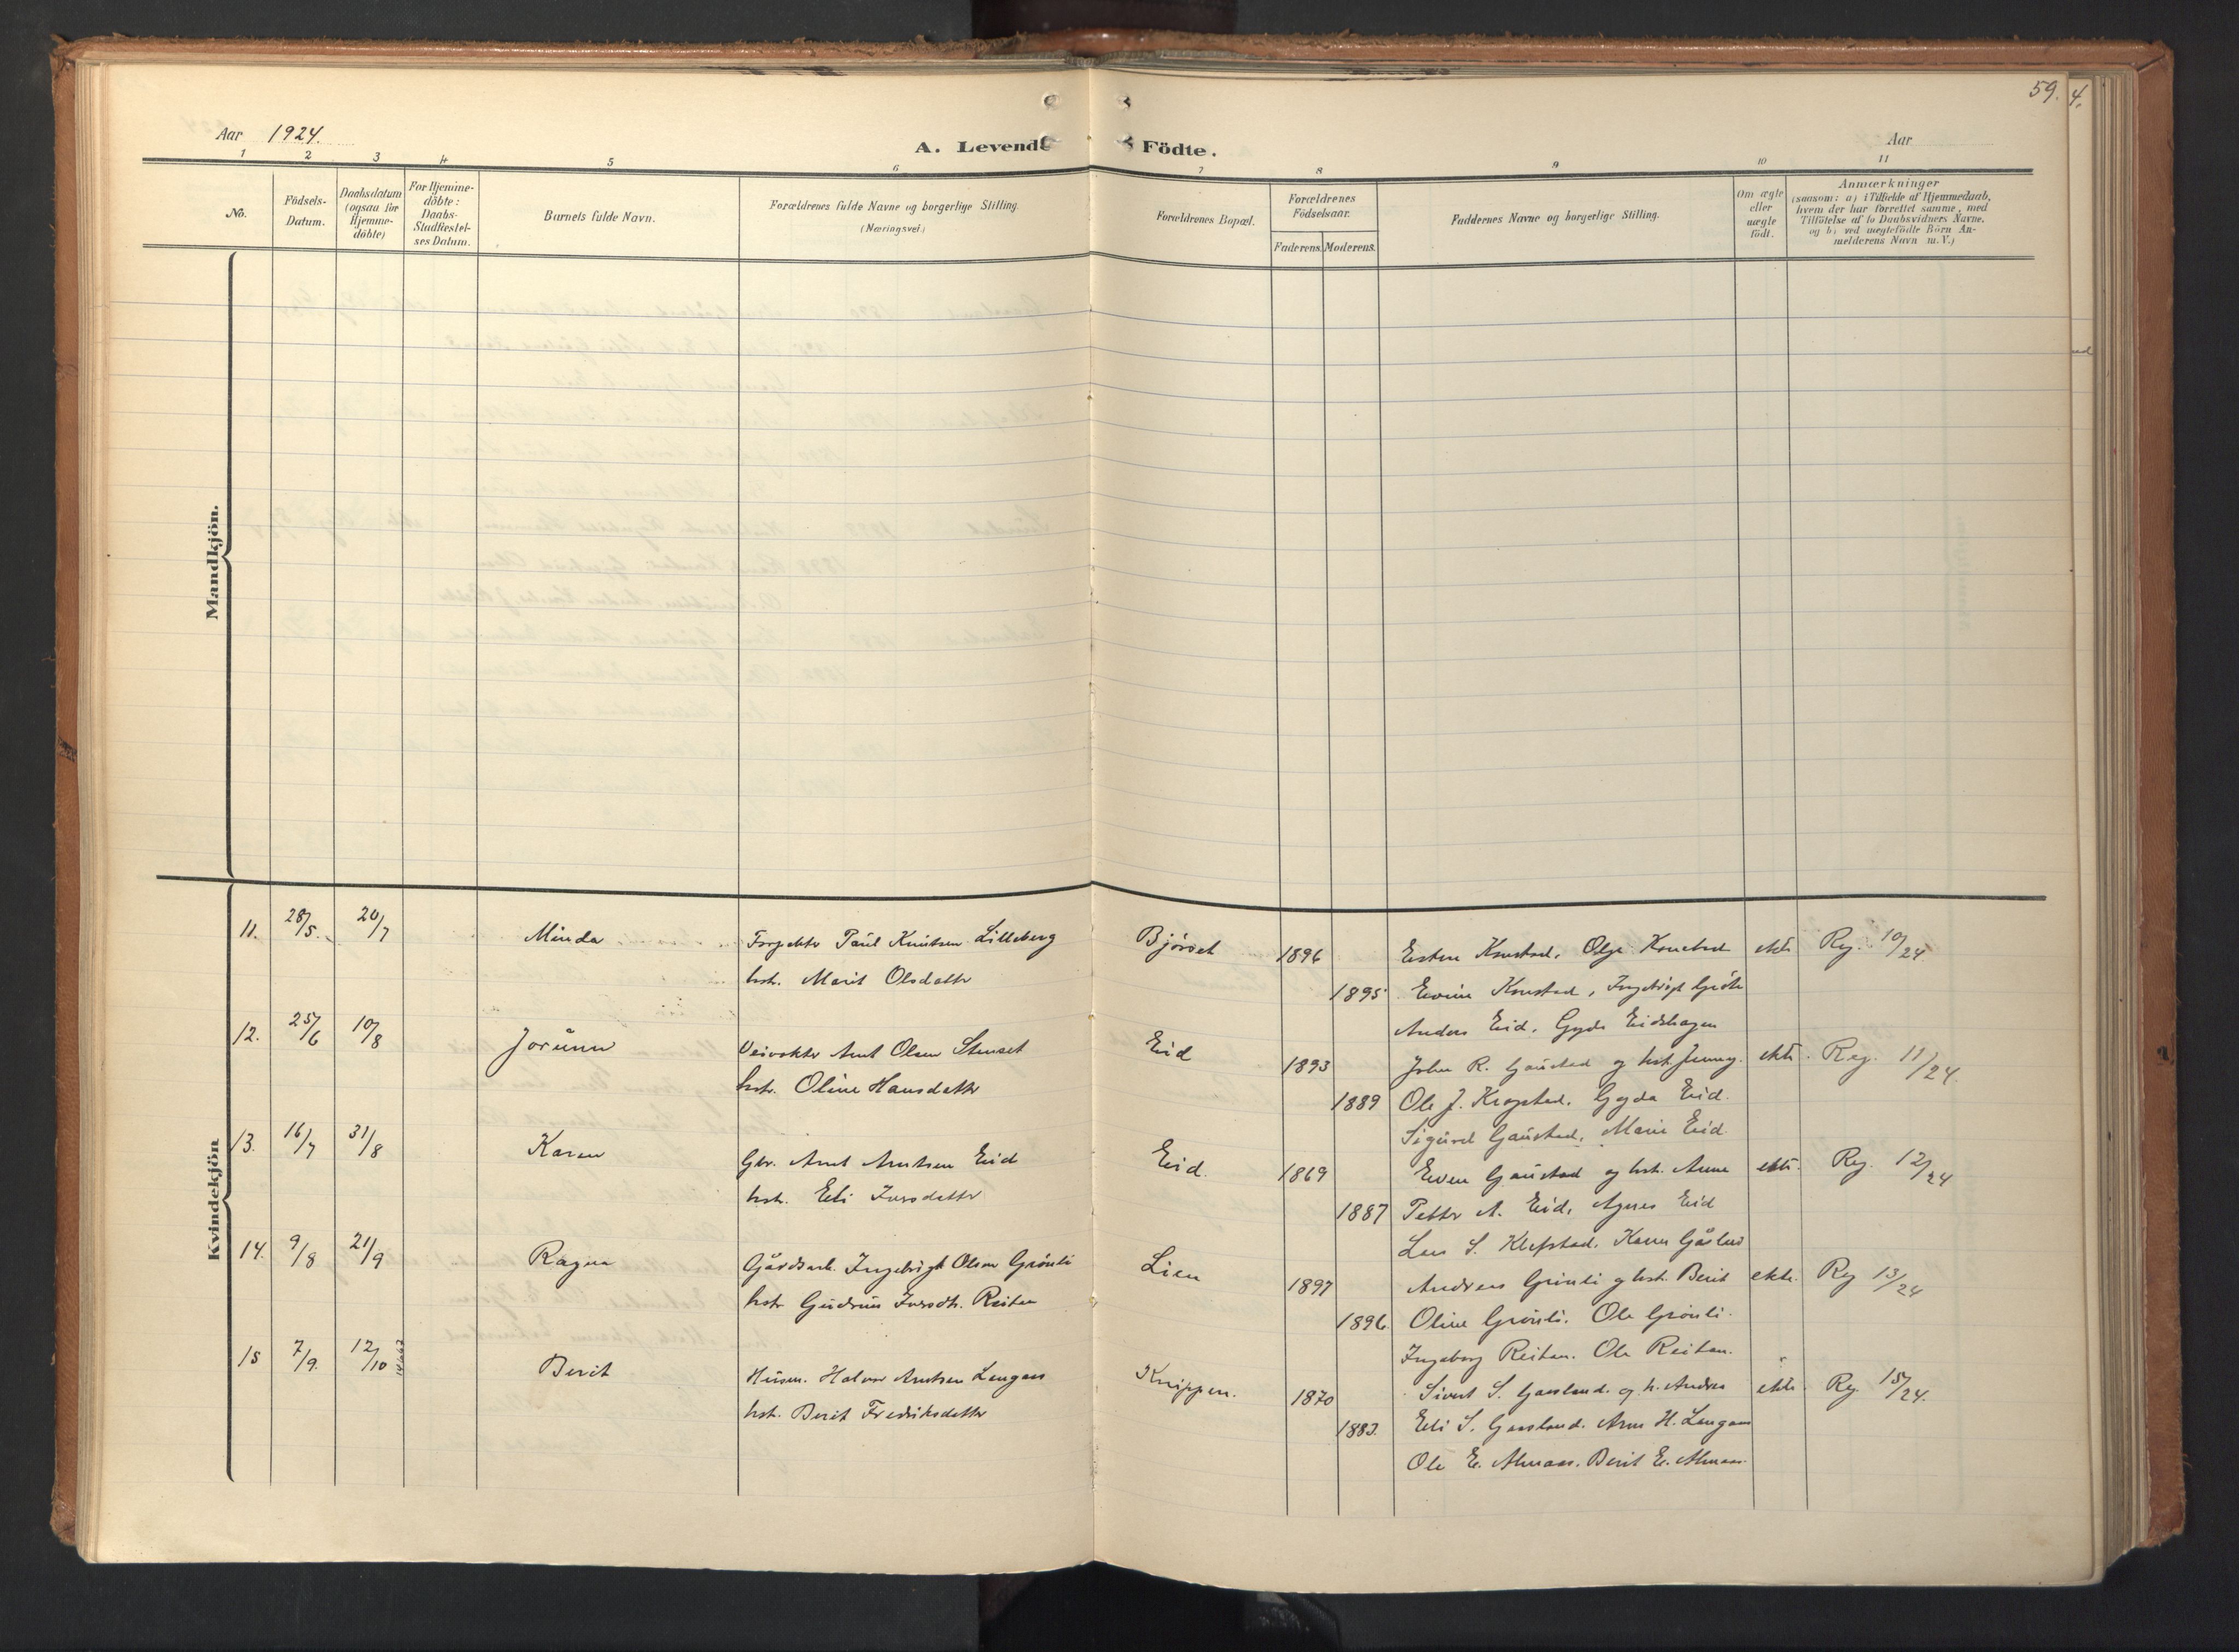 59. 4.
Aar 1924.
A. Levende Födte.
Aar
1 2 3 4 5 6 7 8 9 10 11
No.
Födsels-Datum.
Daabsdatum (ogsaa for Hjemme-döbte)
For Hjemme-döbte: Daabs-Stadfæstel-ses Datum.
Barnets fulde Navn.
Forældrenes fulde Navne og borgerlige Stilling. (Næringsvei.)
Forældrenes Bopæl.
Forældrenes Födselsaar.
Faderens. Moderens.
Faddernes Navne og borgerlige Stilling.
Om ægte eller uægte födt.
Anmærkninger
(saasom: a) i Tilfælde af Hjemmedaab,
hvem der har forrettet samme, med
Tilföielse af to Daabsvidners Navne.
og b) ved uægtefödte Börn An-
melderens Navn m.V.)
Mandkjön.
Kvindekjön
11. 28/5. 20/7 Minda Forpakter Paul Knutsen Lilleberg Bjørset 1896 Esten Konstad, Olga Konstad ekte Reg. 10/24
hstr. Marit Olsdatter 1895 Konstad, Ingebrigt
Anders Eid. Gyda Eidshagen
12. 25/6 10/8 Jorunn Veivokter Arnt Olsen Stenset Eid 1893 John R. Gaustad og hst. Jenny. ekte. Reg. 11/24.
hstr. Oline Hansdatter 1889 Ole J. Krogstad. Gyda Eid.
Sigurd Gaustad, Marie Eid.
13. 16/7 31/8 Karen Gbr. Arnt Arntsen Eid Eid. 1869 Even Gaustad og hst. Anne ekte. Reg. 12/24
hst. Eli Iversdatter 1887 Petter A. Eid, Agnes Eid
Lars S. Klefstad. Karen
14. 9/8 21/9 Ragna Gårdsarb. Ingebrigt Olsen Grønli Lien 1897 Andreas Grønli og hst. Berit ekte. Reg 13/24
hstr Gudrun Iversdtr. Reitan 1896. Oline Grønli. Ole Grønli.
Ingeborg Reitan. Ole Reitan.
15 7/9. 12/10 Berit Husm. Halvor Arntsen Lengaas Knippen. 1870 Sivert S. Gaasland. og h. Andrea ekte. Reg. 15/24.
hst. Berit Fredriksdatter 1883. Eli S. Gaasland. Arne H. Lengaas
Ole E. Almaas. Berit E. Almaas.